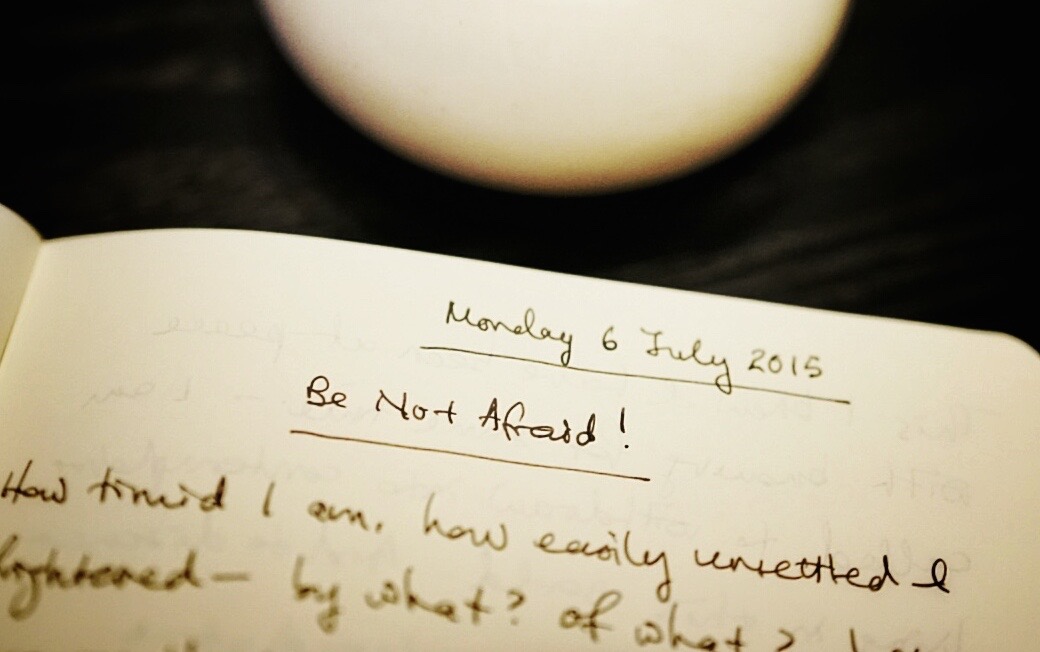 Monday 6 July 2015
Be Not Afraid!
How timid I am, how easily unsettled &
frightened – by what? of what?